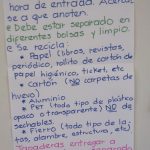 hora de entrada. Acercar
se a que anoten.
• Debe estar separado en
diferentes bolsas y limpio.
• Se recicla:
• Papel (libros, revistas,
periódico, rollito de cartón de
papel higiénico, ticket, etc
• Cartón (NO carpetas de
huevo)
• Aluminio
• Pet (todo tipo de plástico
opaco o transparente) NO de
sechables.
• Fierro (todo tipo de la
tas, alambre, estructura, etc)
entregar a